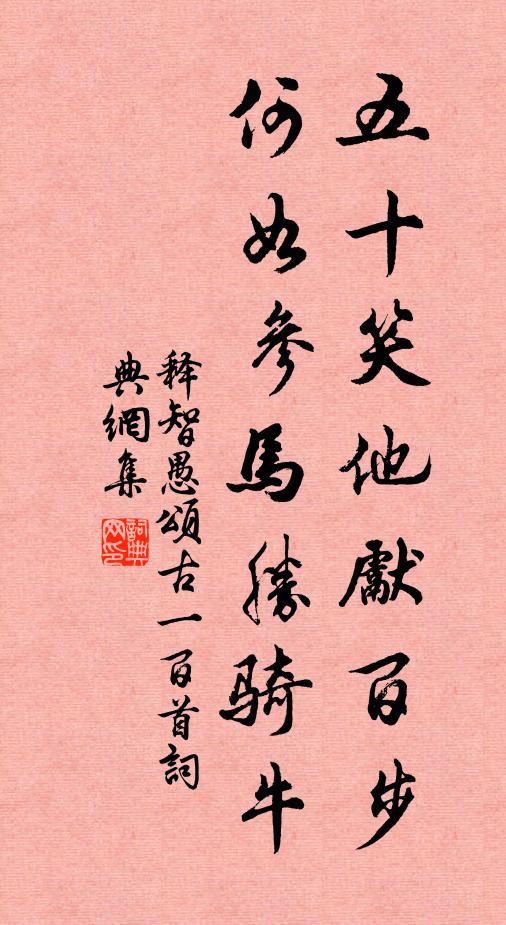 五十笑他獻百步
何如參馬勝騎牛
释智愚頌古一百首詞
典網集
詞典網印